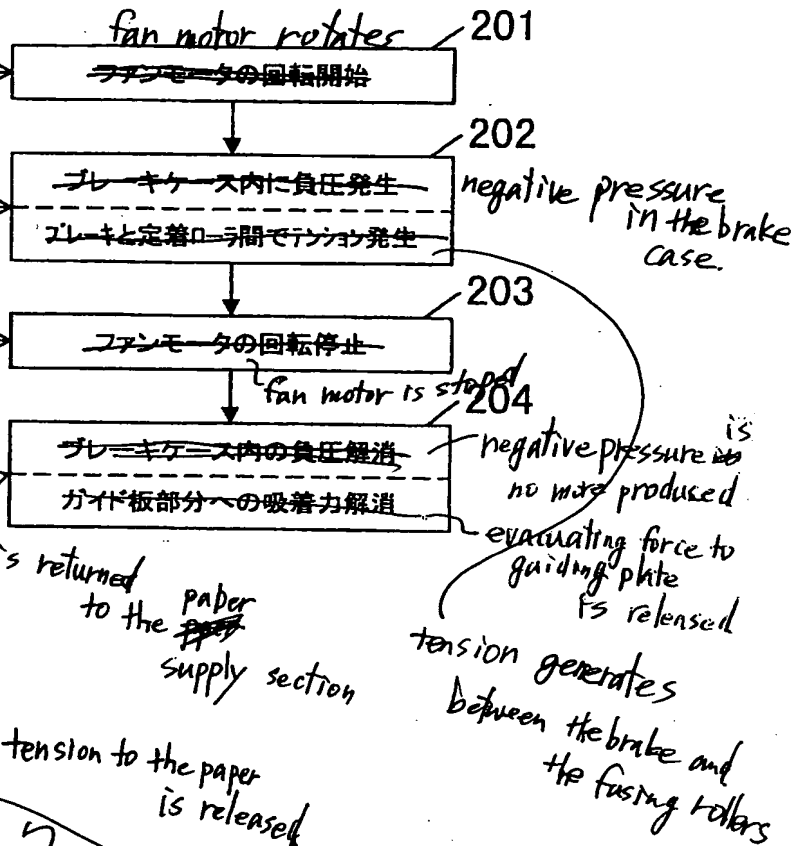 fan motor rotates
201
ファンモータの回転開始
202
ブレーキケース内に負圧発生
negative pressure
in the brake
case.
ブレーキと定着ローラ間でテンション発生
203
ファンモータの回転停止
fan motor is stoped
204
ブレーキケース内の負圧解消
negative pressure is
no more produced
ガイド板部分への吸着力解消
evacuating force to
guiding plate
is released
's returned
to the paper
supply section
tension generates
between the brake and
the fusing rollers
tension to the paper
is released